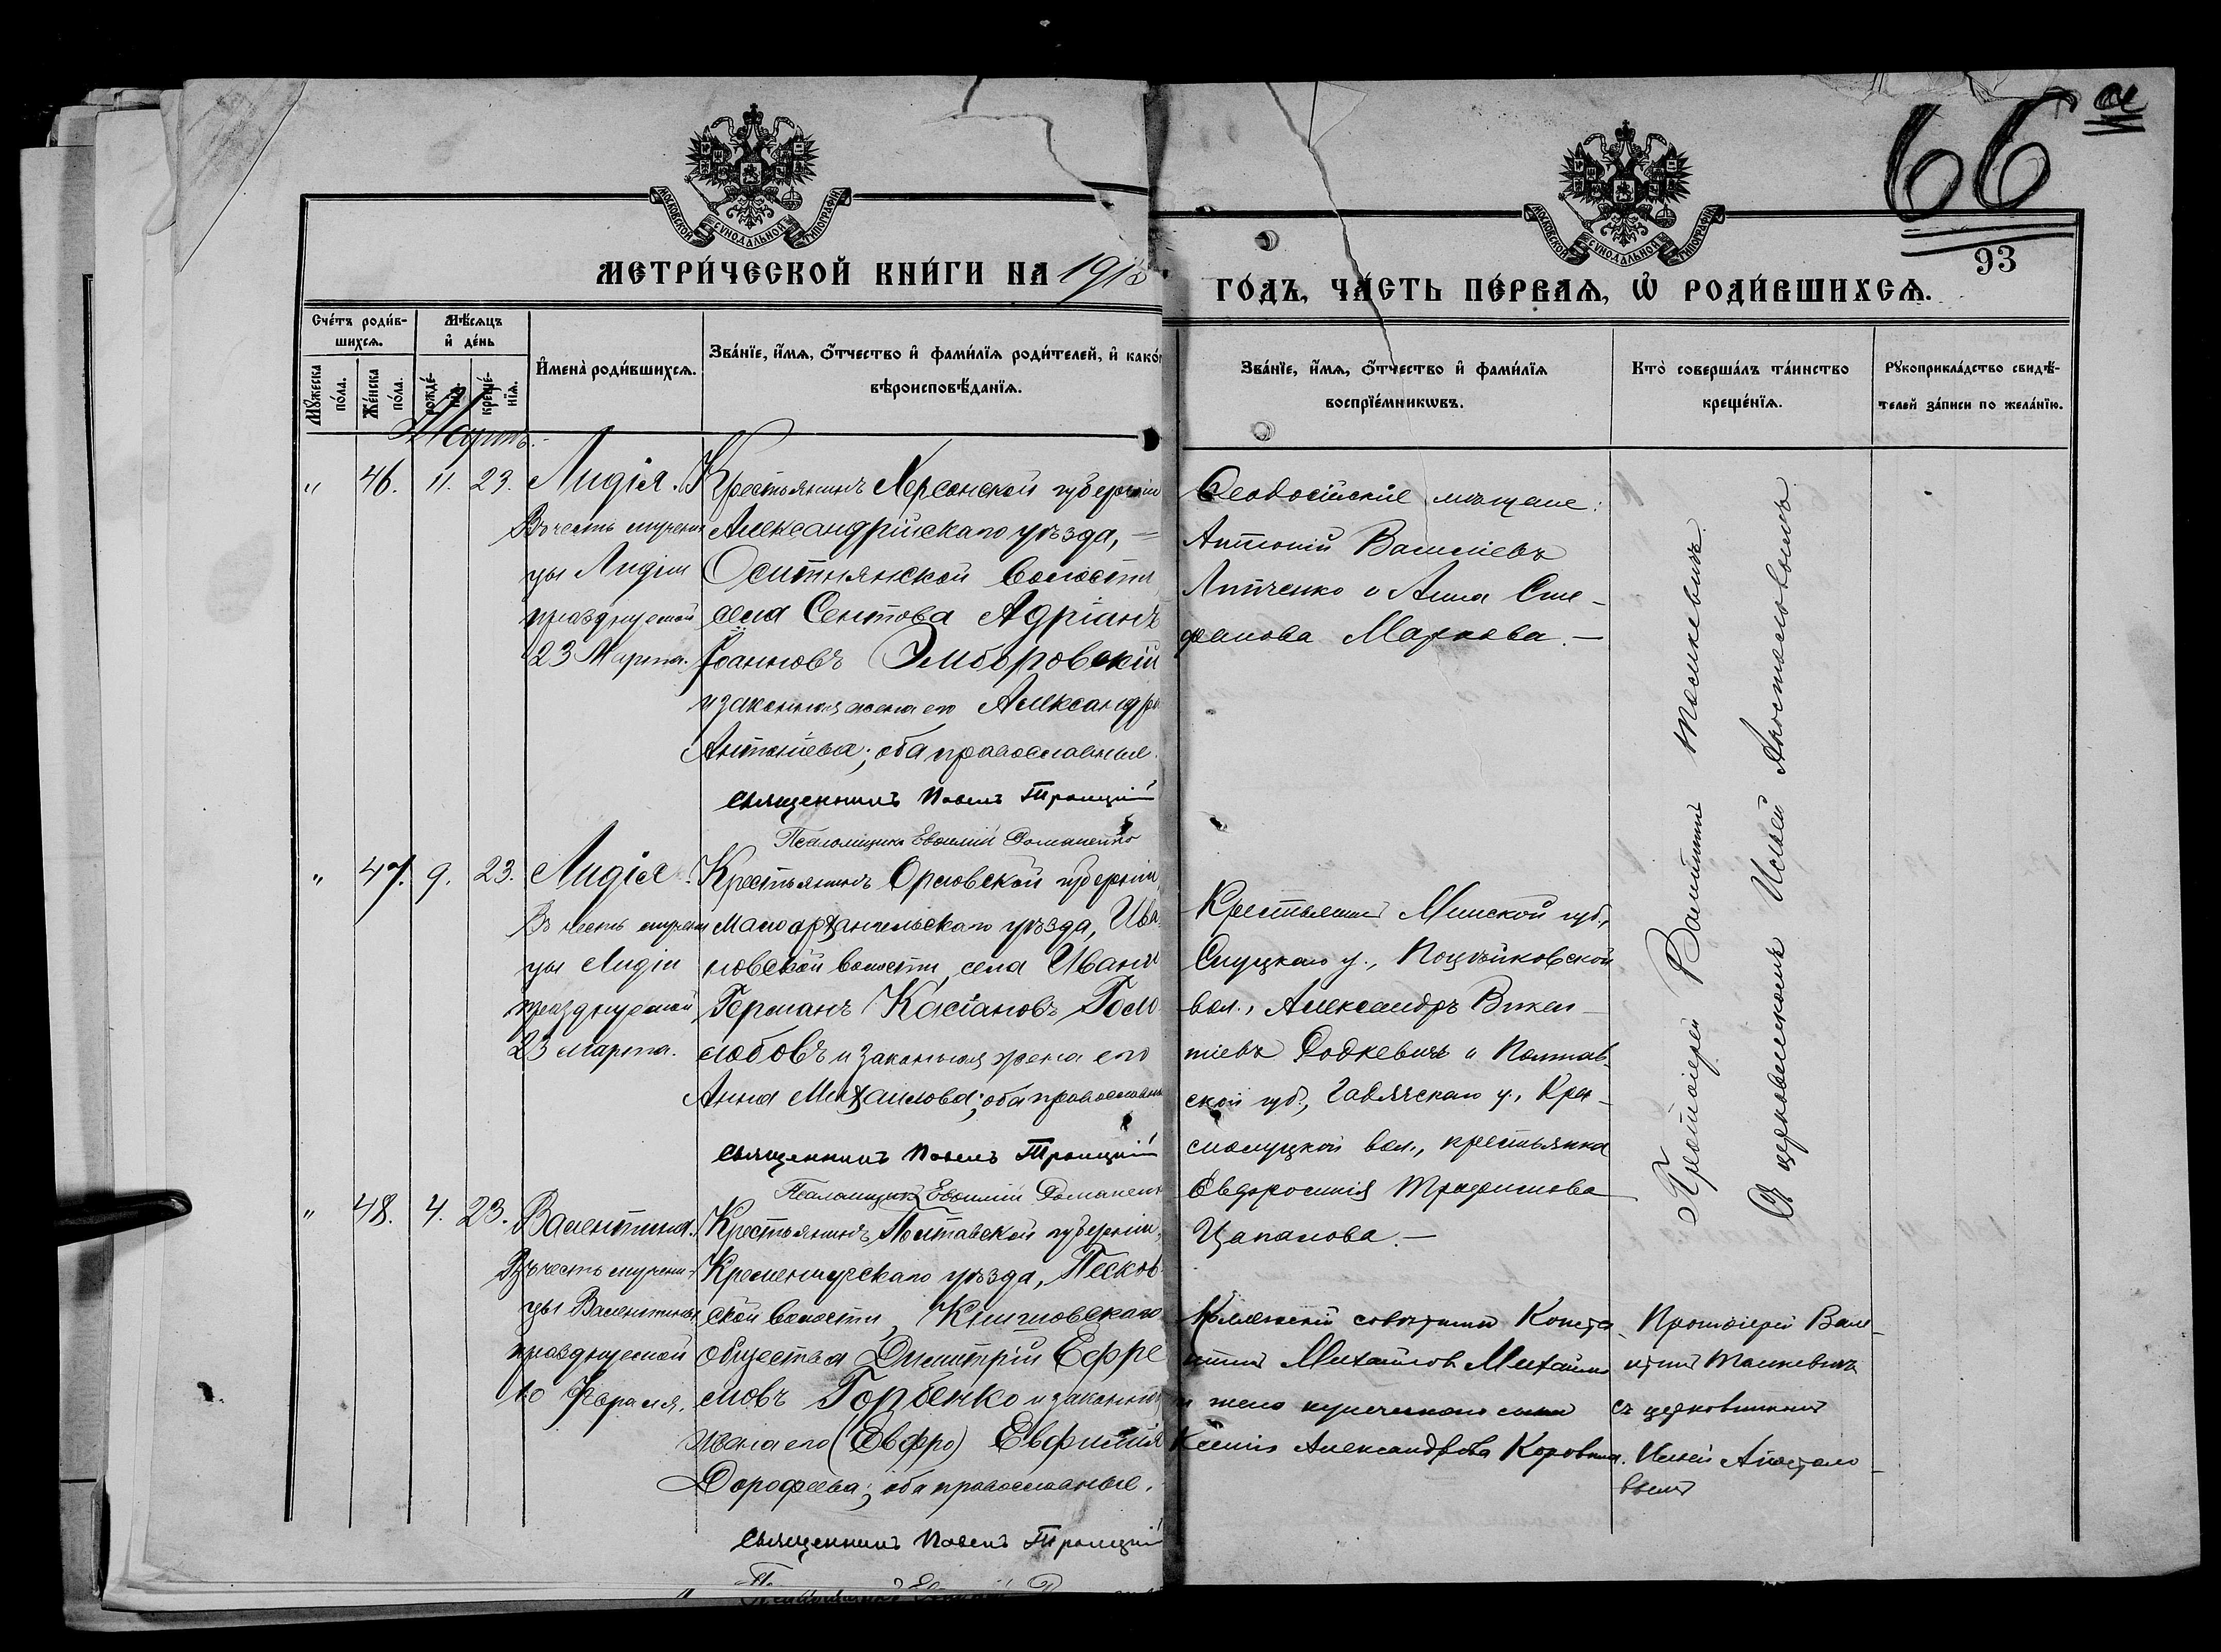 66 об
93
МОСКОВСКОЙ СѴНОДАЛЬНОЙ ТИПОГРАФІИ
МЕТРИ́ЧЕСКОЙ КНИ́ГИ НА 1913
МОСКОВСКОЙ СѴНОДАЛЬНОЙ ТИПОГРАФІИ
ГО́ДЪ, ЧА́СТЬ ПЕ́РВАѦ, Ѡ РОДИ́ВШИХСѦ.
Сче́тъ роди́в-
шихсѧ.
Мꙋ́жеска
по́ла.
Же́нска
по́ла.
Мѣ́сѧцъ
и҆ де́нь
рожде́-
нїѧ.
креще́-
нїѧ.
И҆мена̀ роди́вшихсѧ.
Зва́нїе, и҆́мѧ, ѻ҆́тчество и҆ фами́лїѧ роди́телей, и҆ како́г
вѣроисповѣ́данїѧ.
Зва́нїе, и҆́мѧ, ѻ҆́тчество и҆ фами́лїѧ
воспрїе́мникѡвъ.
Кто̀ соверша́лъ та́инство
креще́нїѧ.
Рꙋкоприкла́дство свидѣ́-
телей за́писи по жела́нїю.
Мартъ.
" 46. 11. 23. Лидія.
Въ честь мучени
цы Лидіи
празднуемой
23 Марта.
Крестьянинъ Херсонской губерніи
Александрійскаго уѣзда,
Оситнянской волости
села Сентова Адріанъ
Іоанновъ Эмборовскій
и законная жена его Александра
Антоніева; оба православные.
Священникъ Павелъ Троицкій
Псаломщикъ Евѳимій Романенко
Ѳеодосійскіе мѣщане:
Антоній Василіевъ
Литченко и Анна Сте-
фанова Маркова.—
Протоіерей Валентинъ Томкевичъ
Съ церковникомъ Ильей Апостоловымъ
" 47. 9. 23. Лидія.
Въ честь мучени
цы Лидіи
празднуемой
23 марта.
Крестьянинъ Орловской губерніи,
Малоархангельскаго уѣзда, Ива
новской волости, села Ивань
Германъ Касіановъ Голо
лобовъ и законная жена его
Анна Михаилова; оба православные
Священникъ Павелъ Троицкій
Псаломщикъ Евѳимій Романенко
Крестьянинъ Минской губ.,
Слуцкаго у., Поцѣйковской
вол., Александръ Викен-
тіевъ Родкевичъ и Полтав
ской губ., Гадячскаго у., Кра-
снолуцкой вол., крестьянка
Евдросинія Трофимова
Цапалова.—
" 48. 4. 23. Валентина.
Въ честь мучени-
цы Валентины
празднуемой
10 Февраля.
Крестьянинъ Полтавской губерніи,
Кременчугскаго уѣзда, Песков
ской волости, Климовскаго
общества Димитрій Ефре
мовъ Горбенко и законная
жена его (Евфро) Евфимія
Дорофеева; оба православные.
Священникъ Павелъ Троицкій
Коллежскій совѣтникъ Конста
нтинъ Михайловъ Михайло
и жена купеческаго сына
Ксенія Александрова Коровина.
Протоіерей Вале-
нтинъ Томкевичъ
съ церковникомъ
Ильей Апостоло-
вымъ